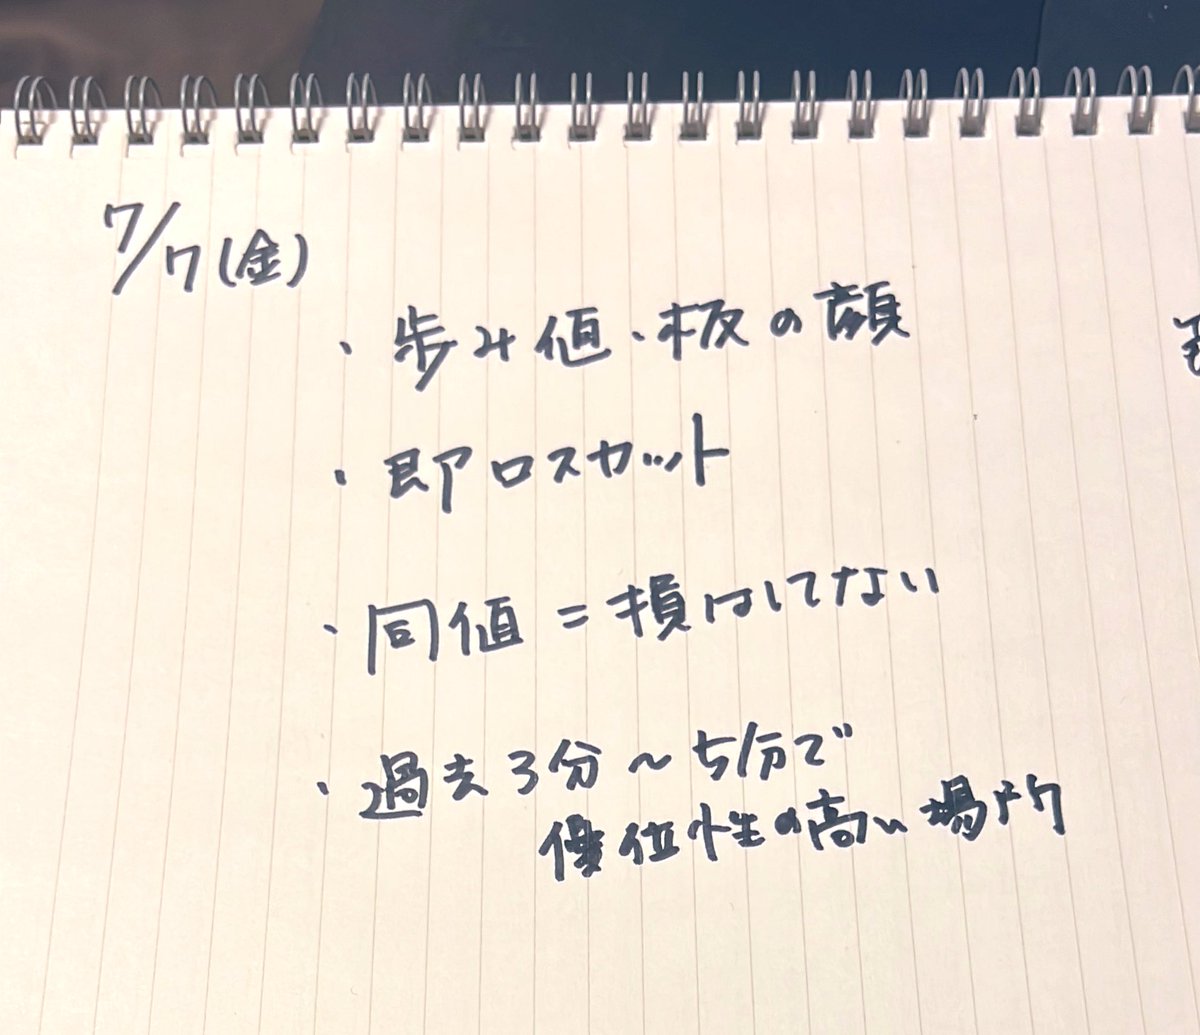 7/7(金)
・歩み値、板の顔
・即ロスカット
・同値=損はしてない
・過去3分〜5分で
優位性の高い場所